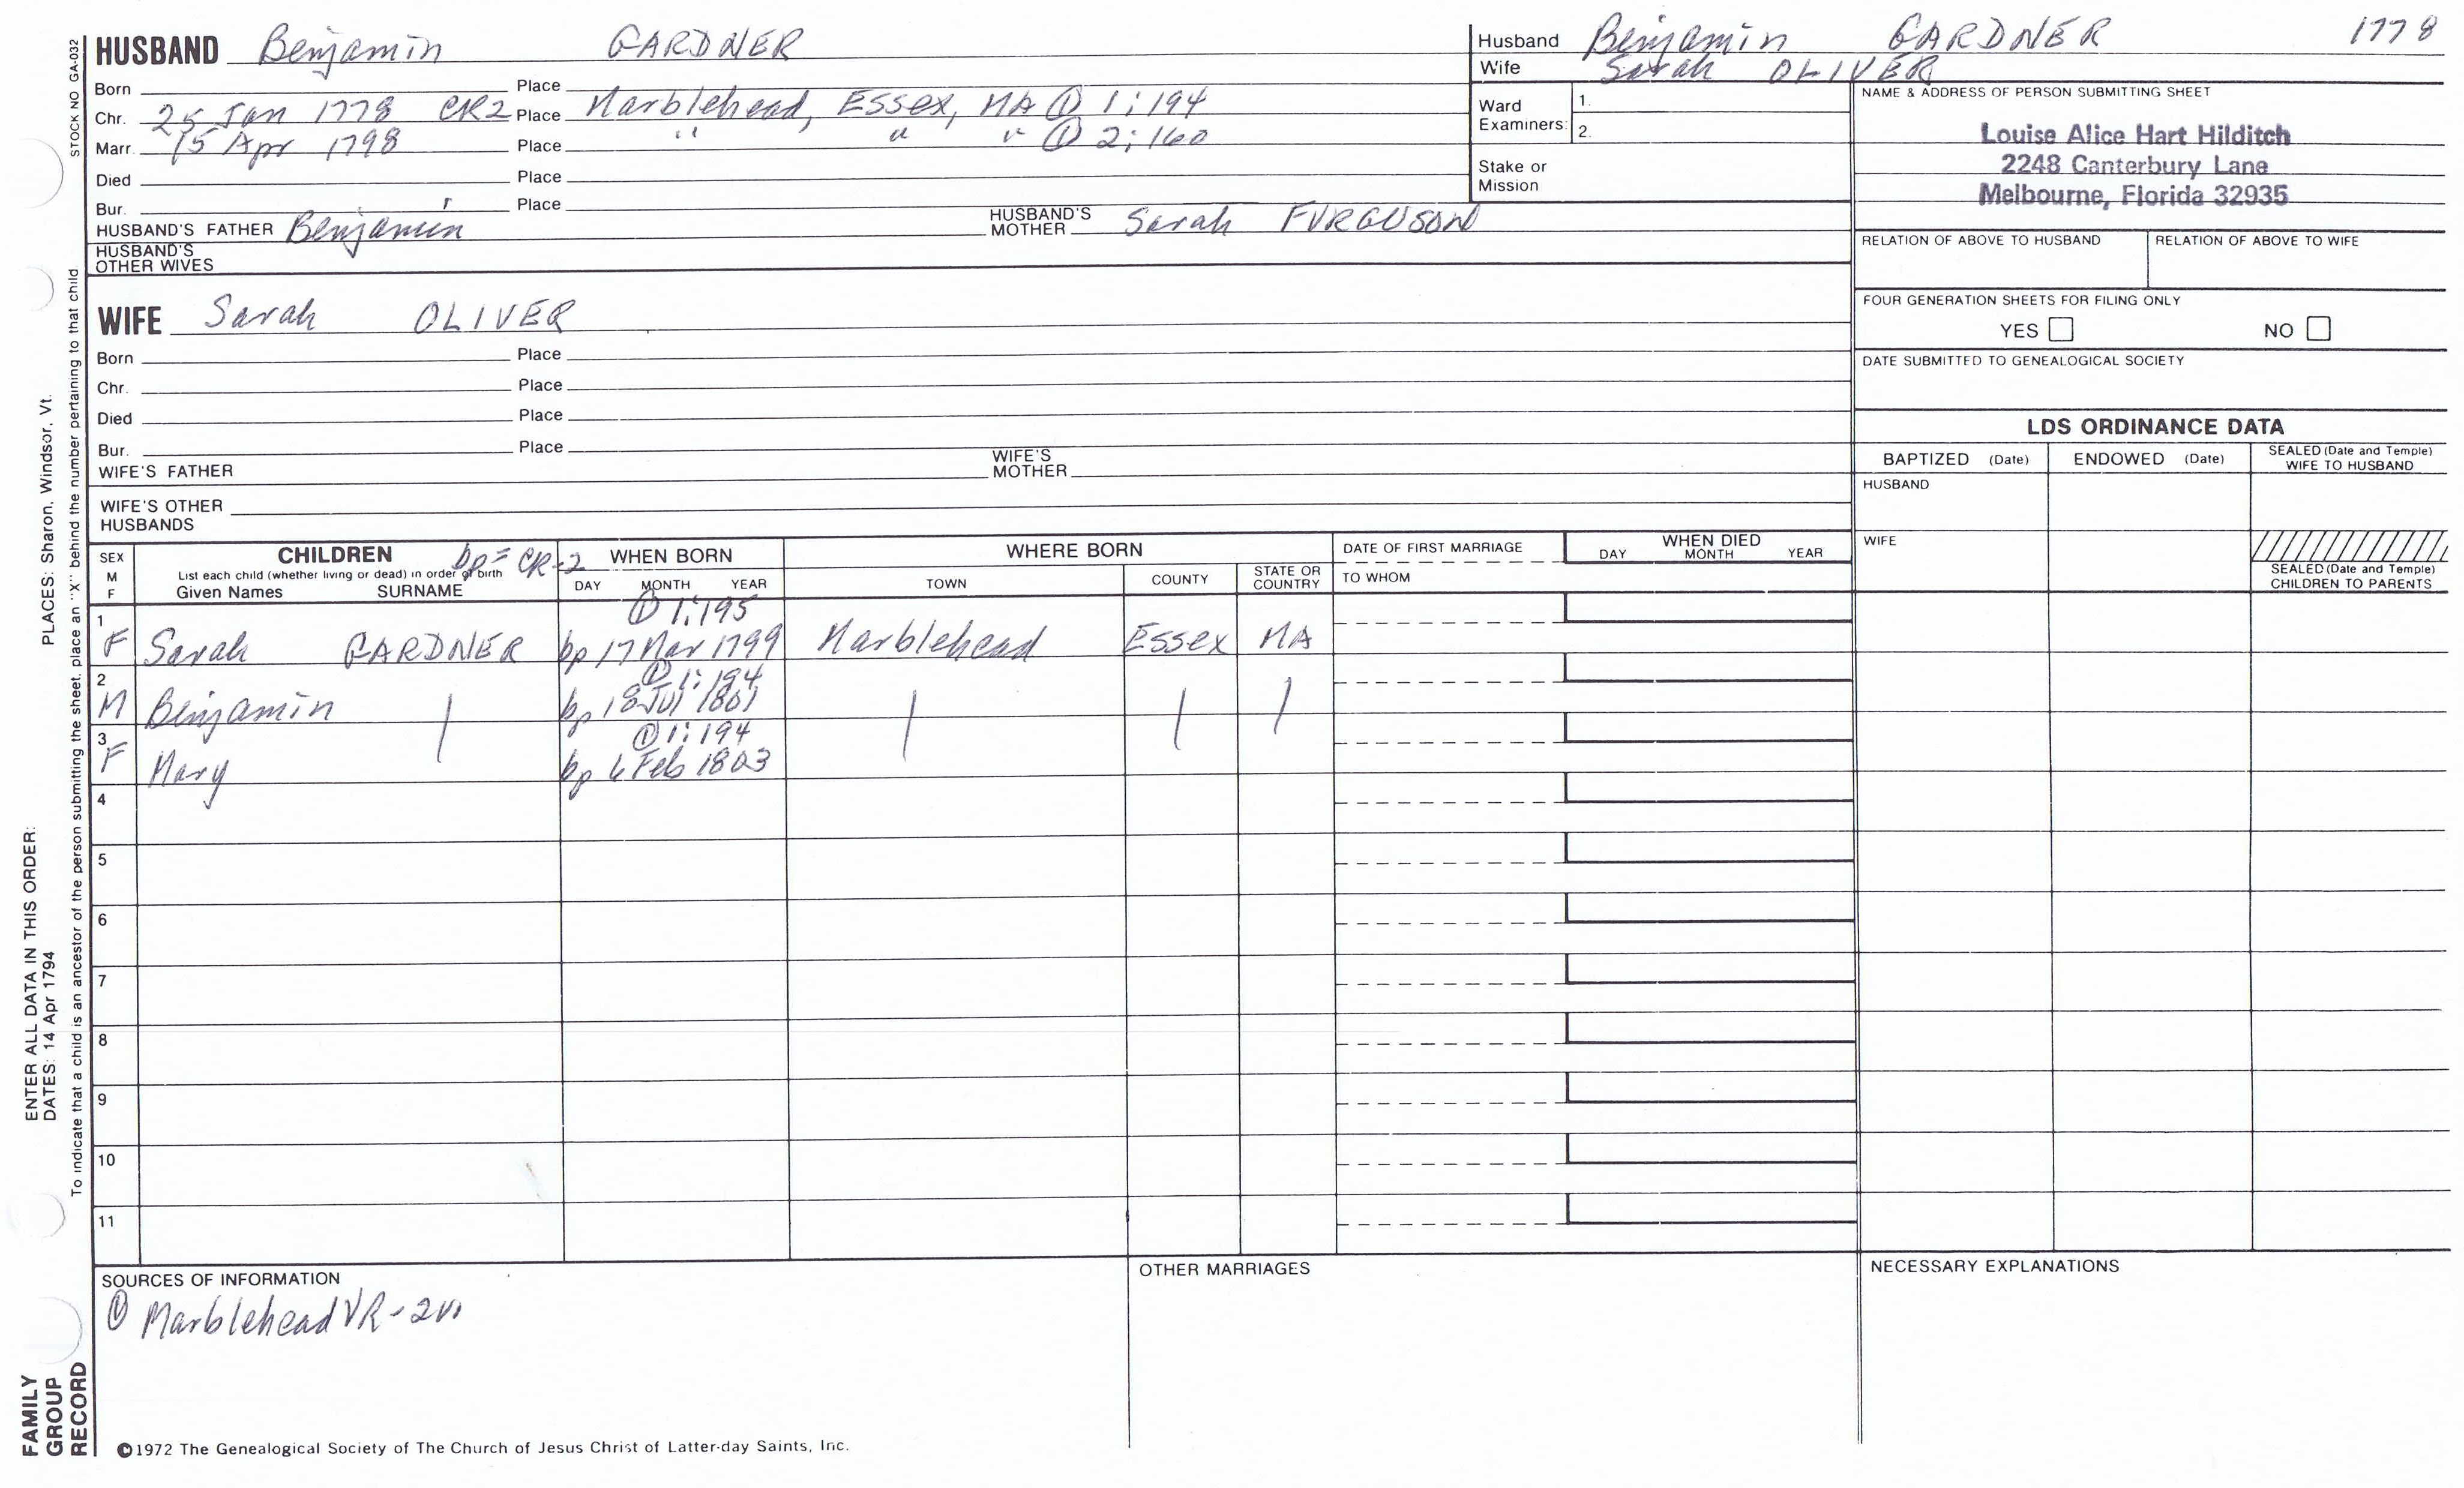 HUSBAND Benjamin GARDNER
Born Place
Chr. 25 Jan 1778 CR2 Place Marblehead, Essex, MA ① 1:194
Marr. 15 Apr 1798 Place " " " ① 2:160
Died Place
Bur. Place
HUSBAND'S FATHER Benjamin HUSBAND'S MOTHER Sarah FURGUSON
HUSBAND'S OTHER WIVES
Husband Benjamin GARDNER 1778
Wife Sarah OLIVER
Ward Examiners: 1.
2.
Stake or Mission
NAME & ADDRESS OF PERSON SUBMITTING SHEET
Louise Alice Hart Hilditch
2248 Canterbury Lane
Melbourne, Florida 32935
RELATION OF ABOVE TO HUSBAND RELATION OF ABOVE TO WIFE
FOUR GENERATION SHEETS FOR FILING ONLY
YES NO
DATE SUBMITTED TO GENEALOGICAL SOCIETY
WIFE Sarah OLIVER
Born Place
Chr. Place
Died Place
Bur. Place
WIFE'S FATHER WIFE'S MOTHER
WIFE'S OTHER HUSBANDS
LDS ORDINANCE DATA
BAPTIZED (Date) ENDOWED (Date) SEALED (Date and Temple) WIFE TO HUSBAND
HUSBAND
WIFE
SEALED (Date and Temple) CHILDREN TO PARENTS
SEX M F
CHILDREN bp = CR-2
List each child (whether living or dead) in order of birth
Given Names SURNAME
WHEN BORN
DAY MONTH YEAR
WHERE BORN
TOWN COUNTY STATE OR COUNTRY
DATE OF FIRST MARRIAGE
TO WHOM
WHEN DIED
DAY MONTH YEAR
① 1:195
1 F Sarah GARDNER bp 17 Mar 1799 Marblehead Essex MA
① 1:194
2 M Benjamin | bp 18 Jul 1801 | | |
① 1:194
3 F Mary bp 6 Feb 1803
4
5
6
7
8
9
10
11
SOURCES OF INFORMATION
① Marblehead VR-2v.
OTHER MARRIAGES
NECESSARY EXPLANATIONS
©1972 The Genealogical Society of The Church of Jesus Christ of Latter-day Saints, Inc.
STOCK NO GA-032
To indicate that a child is an ancestor of the person submitting the sheet, place an "X" behind the number pertaining to that child
ENTER ALL DATA IN THIS ORDER: PLACES: Sharon, Windsor, Vt.
DATES: 14 Apr 1794
FAMILY
GROUP
RECORD